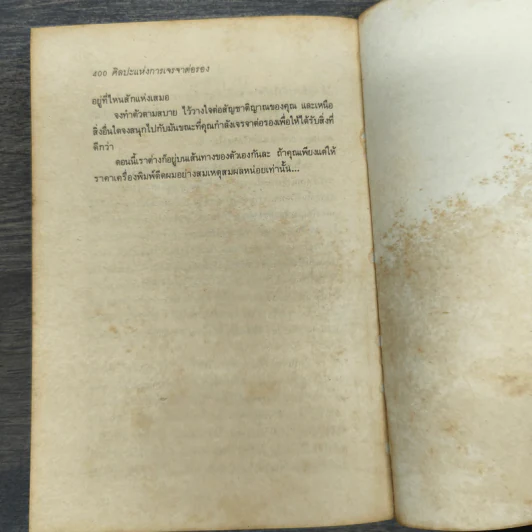 ๔๐๐ ศิลปะแห่งการเจรจาต่อรอง
อยู่ที่ไหนสักแห่งเสมอ
จงทำตัวตามสบาย ไว้วางใจต่อสัญชาติญาณของคุณ และเหนือ
สิ่งอื่นใดจงสนุกไปกับมันขณะที่คุณกำลังเจรจาต่อรองเพื่อให้ได้รับสิ่งที่
ดีกว่า
ตอนนี้เราต่างก็อยู่บนเส้นทางของตัวเองกันละ ถ้าคุณเพียงแต่ให้
ราคาเครื่องพิมพ์ดีดผมอย่างสมเหตุสมผลหน่อยเท่านั้น...